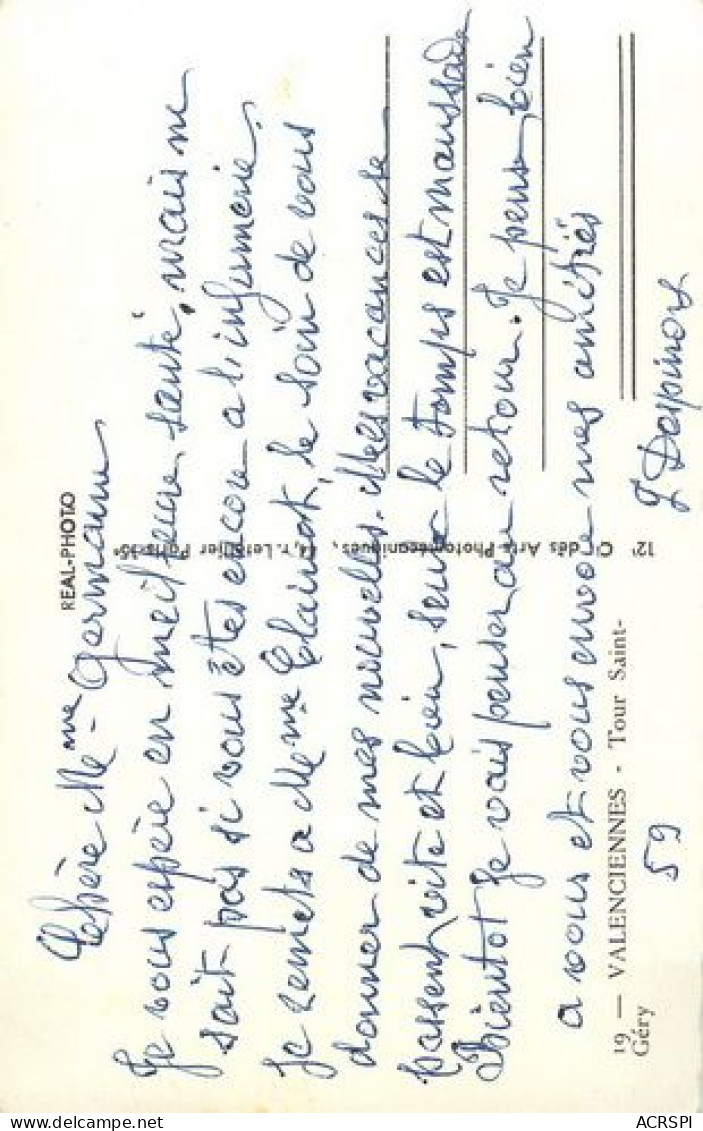 Chère Mme Germaine
Je vous espère en meilleure santé, mais ne
sait pas si vous êtes encore a l'infirmerie.
Je remets a Mme Clairot, le soin de vous
donner de mes nouvelles. Mes vacances se
passent vite et bien, seul le temps est maussade
Bientot je vais penser au retour. Je pense bien
a vous et vous envoie mes amitiés
J Despinoy
59
REAL-PHOTO
Cie des Arts Photomécaniques, 44, r. Letellier Paris-15e
12
19 — VALENCIENNES - Tour Saint-
Géry
ACRSPI